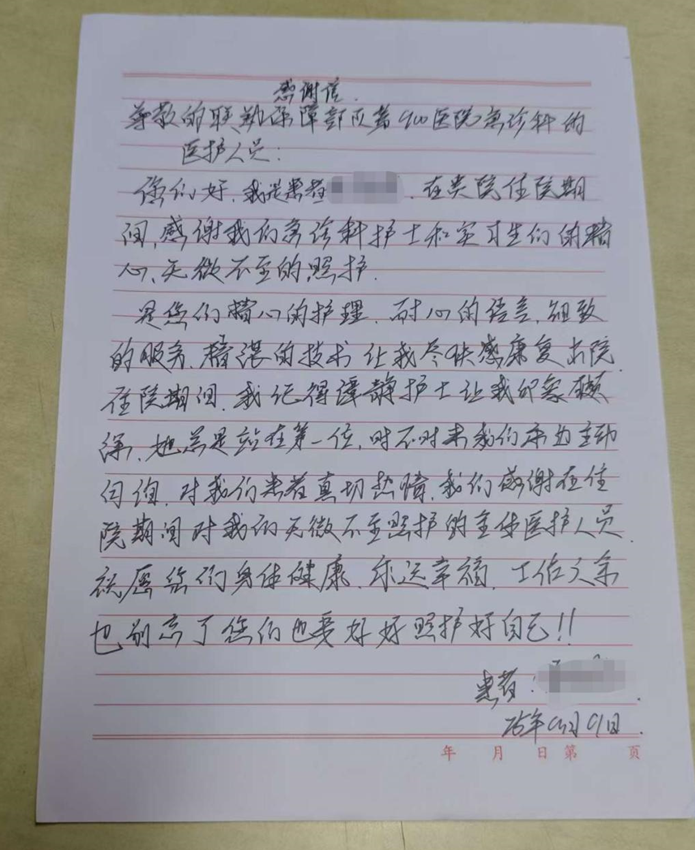 感谢信.
尊敬的联勤保障部队第900医院急诊科的
医护人员:
您们好,我是患者 . 在贵院住院期
间,感谢我们急诊科护士和实习生们的精
心、无微不至的照护.
是您们精心的护理、耐心的语言、细致
的服务、精湛的技术 让我尽快感康复出院.
住院期间. 我记得谭静护士让我印象颇
深, 她总是站在第一位, 时不时来我们床边主动
问询. 对我们患者真切热情. 我们感谢在住
院期间对我们无微不至照护的全体医护人员.
祝愿您们身体健康. 永远幸福. 工作之余
也别忘了您们也要好好照护好自己!!
患者:
25年 月 日.
年 月 日 第 页